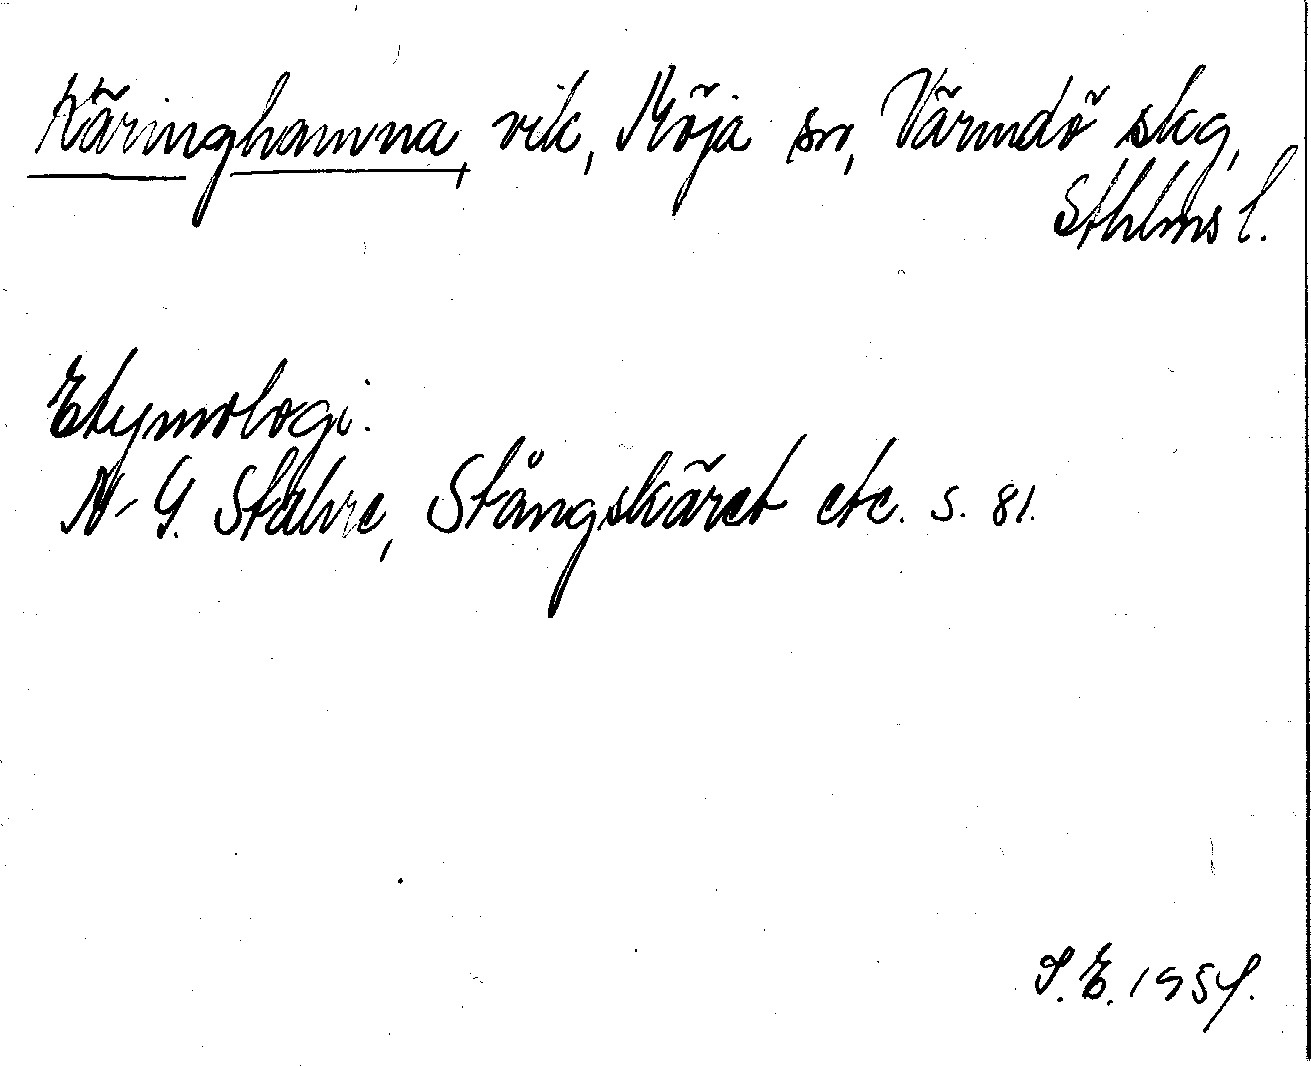 Käringhamna, vik, Möja sn, Värmdö skg,
Sthlms l.
Etymologi.
N-G. Stahre, Stångskäret etc. s. 81.
S.E. 1954.